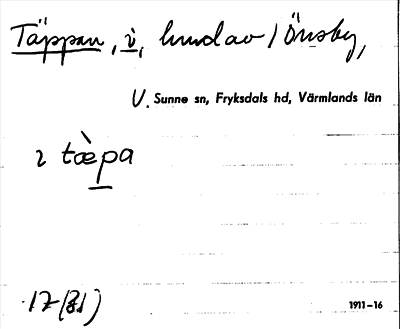 Täppan, i, hmd av 1 Önsby,
V. Sunne sn, Fryksdals hd, Värmlands län
ı tæ̀pa
17 (31)
1911–16